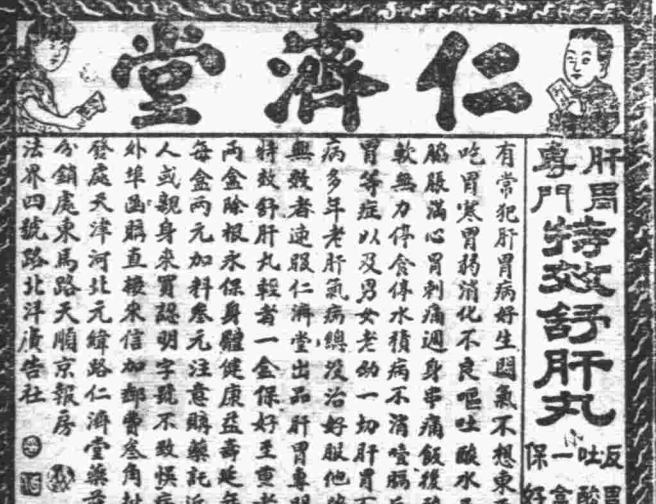 仁濟堂
肝胃
專門
特效舒肝丸
反胃
吐酸
一盒
保好
有常犯肝胃病好生悶氣不想東
吃胃寒胃弱消化不良嘔吐酸水
腦脹滿心胃刺痛週身串痛飯後
軟無力停食停水積病不消噎膈
胃等症以及男女老幼一切肝胃
病多年老肝氣病總沒治好服他
無效者速服仁濟堂出品肝胃專
特效舒肝丸輕者一盒保好至重者
兩盒除根永保身體健康益壽延年
每盒兩元加料叁元注意購藥託
人或親身來買認明字號不致悞
外埠函購直接來信加郵費叁角
發處天津河北元緯路仁濟堂藥
分銷處東馬路天順京報房
法界四號路北洋廣告社